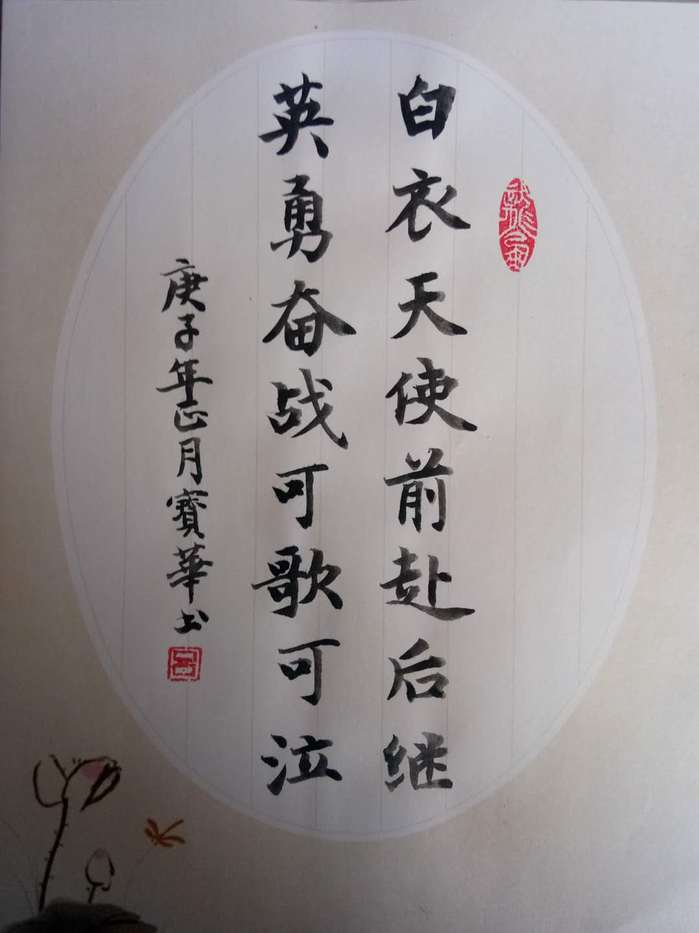 白衣天使前赴后继
英勇奋战可歌可泣
庚子年正月寶華书